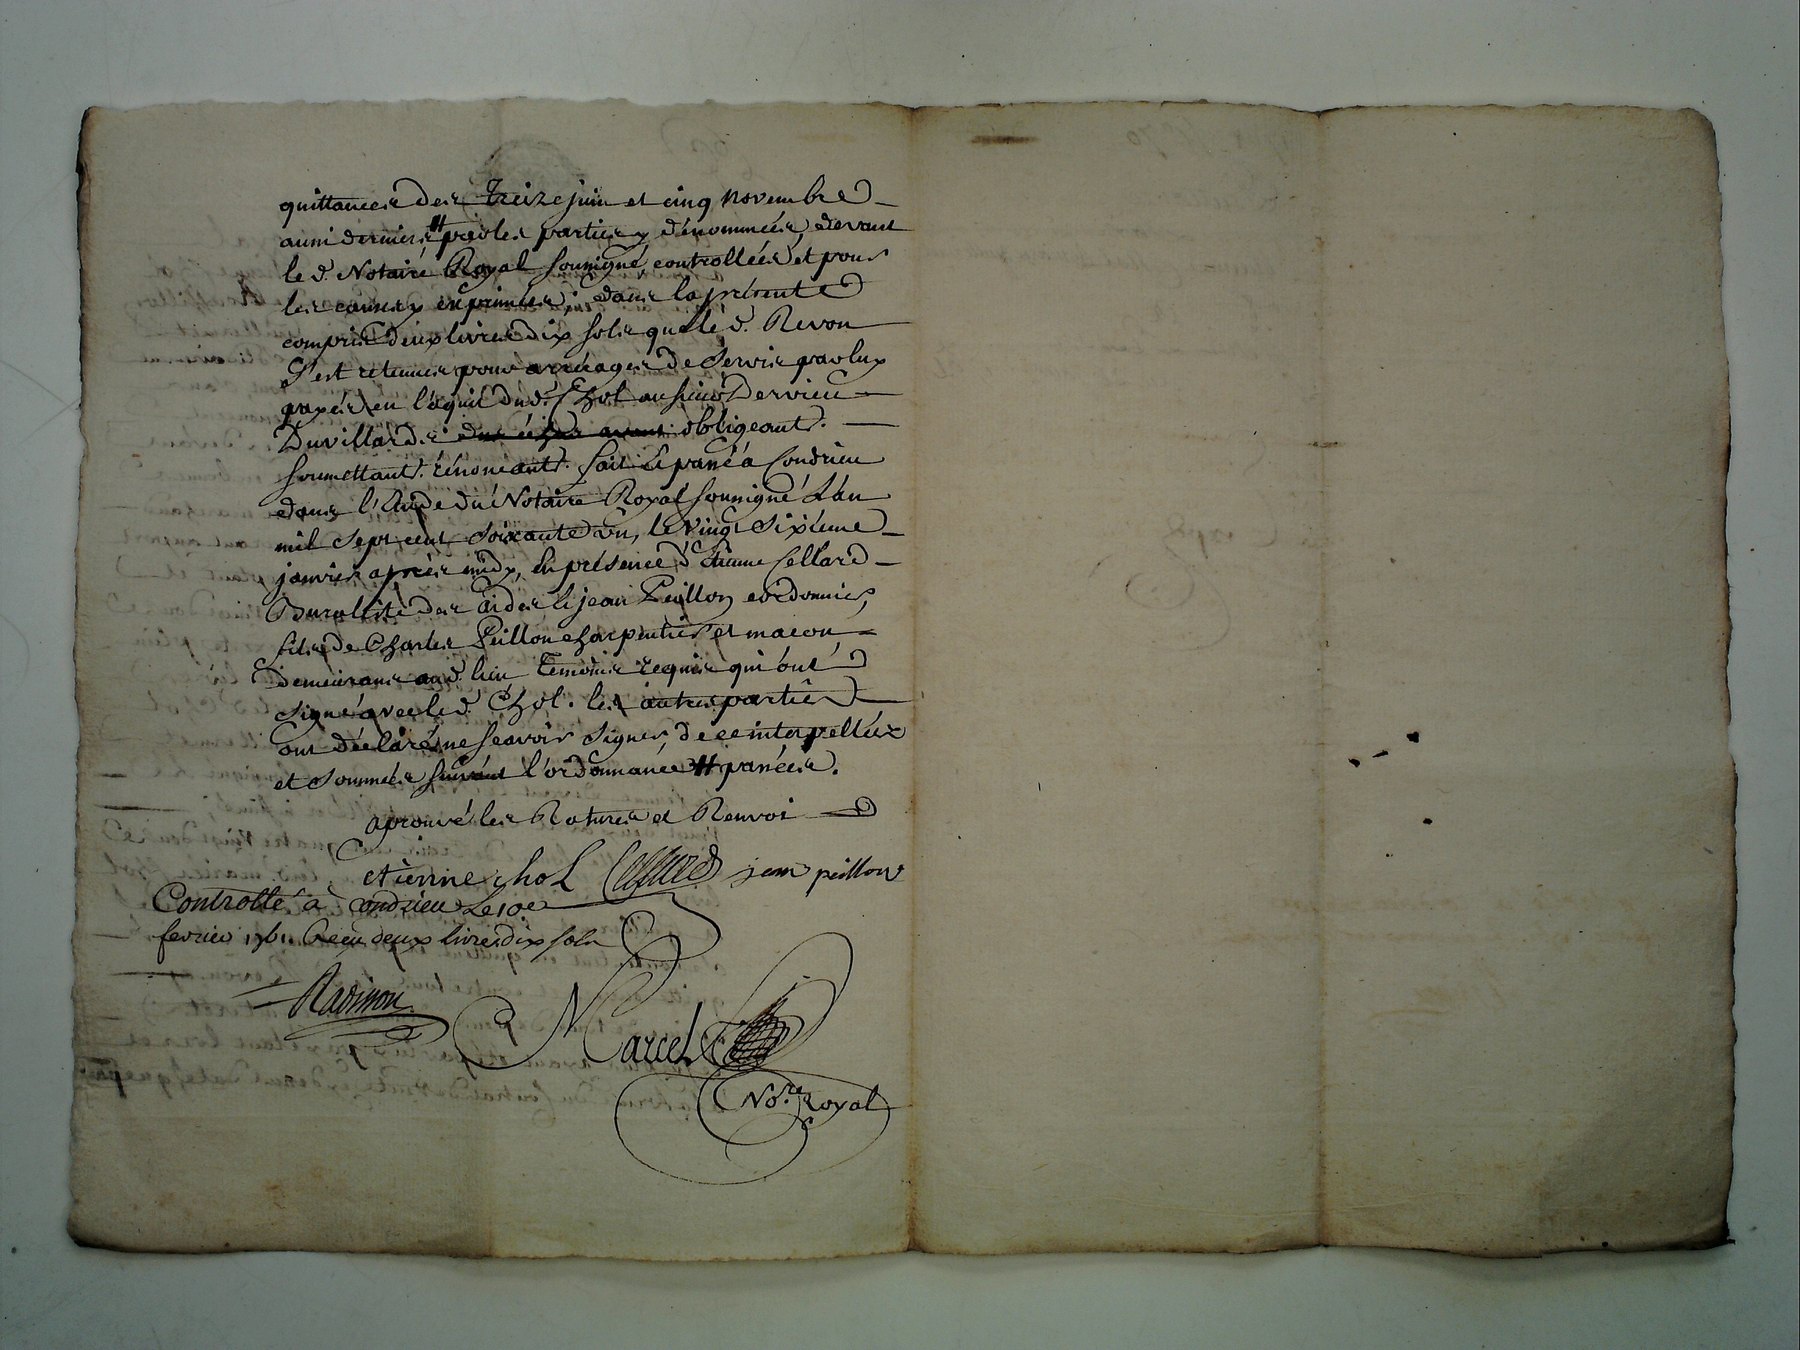 quittances des treize juin et cinq novembre
aussi derniers # par les parties y dénommées, devant
le d. Notaire Royal soussigné, controllées et pour
les causes y exprimées; dans la présente
compris deux livres dix sols que le d. Revon
s'est retenues pour arrérages de servis par luy
payés en l'aquit du d. Chol au sieur Dervieu
Duvillards obligeant.
soumettant. rénonçant. fait et passé à Condrieu
dans l'Etude du Notaire Royal soussigné L'an
mil sept cent soixante un, le vingt sixieme
janvier après midy, en présence d'Etienne Cellard
Buraliste des aides et jean Peillon cordonnier,
fils de Charles Peillon charpentier et macon
demeurans aud. lieu temoins requis qui ont
signé avec le d. Chol. les autres parties
ont déclaré ne scavoir signer, de ce interpellées
et sommées suivant l'ordonnance # passées.
aprouvé les Ratures et Renvoi
etienne chol Cellard jean peillon
Controllé à Condrieu Le 10e
fevrier 1761. Receu deux livres dix sols
Marcel
Nore. Royal